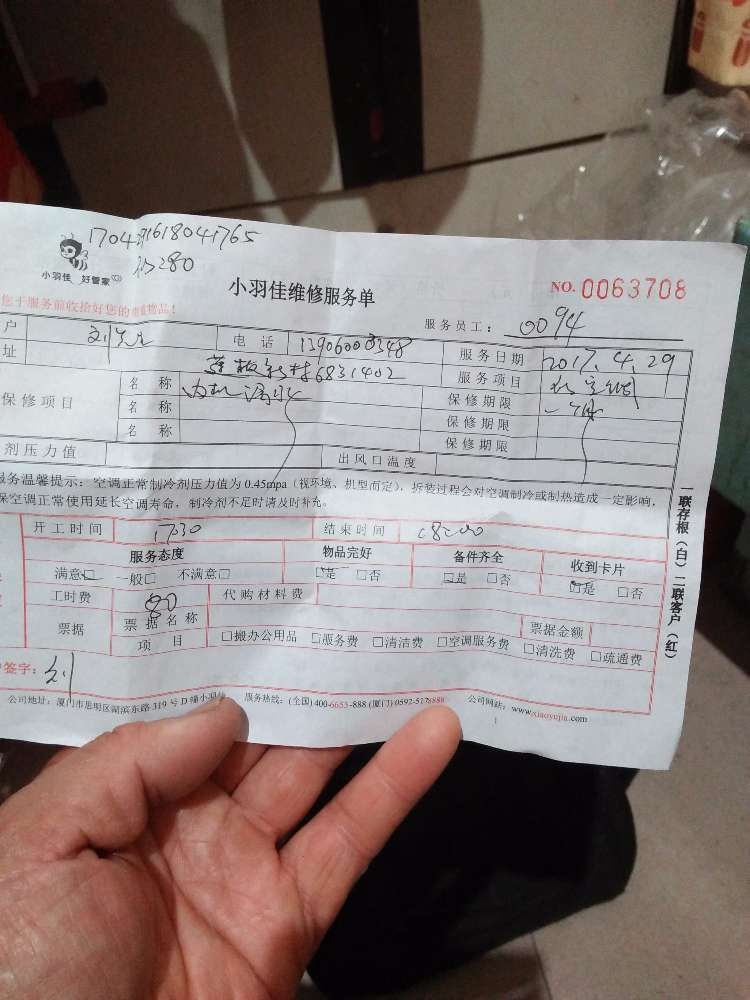 小羽佳 好管家
280
小羽佳维修服务单
NO. 0063708
您于服务前收拾好您的贵重物品!
服务员工: 0094
户 刘先生 电话 服务日期 2017.4.29
址 6831402 服务项目
保修项目 名称 内机漏水 保修期限 一个月
名称 保修期限
名称 保修期限
剂压力值 出风口温度
服务温馨提示:空调正常制冷剂压力值为 0.45mpa (视环境、机型而定),拆装过程会对空调制冷或制热造成一定影响,
保空调正常使用延长空调寿命,制冷剂不足时请及时补充。
开工时间 17:30 结束时间 18:00
服务态度 物品完好 备件齐全 收到卡片
满意□ 一般□ 不满意□ □是 □否 □是 □否 □是 □否
工时费 80 代购材料费
票据 票据名称 票据金额
项目 □搬办公用品 □服务费 □清洁费 □空调服务费 □清洗费 □疏通费
签字: 刘
公司地址:厦门市思明区湖滨东路 319 号 D 幢小羽佳 服务热线:(全国) 400-6653-888 (厦门) 0592-5178888 公司网站: www.xiaoyujia.com
一联存根(白)二联客户(红)